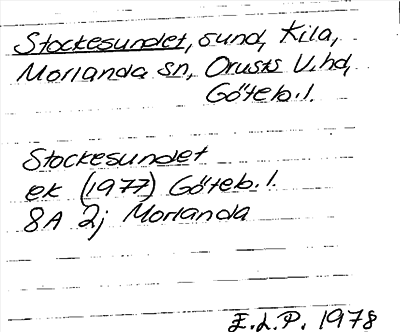 Stockesundet, sund, Kila,
Morlanda sn, Orusts V. hd,
Göteb. l.
Stockesundet
ek (1977) Göteb. l.
8A 2j Morlanda
E.L.P. 1978